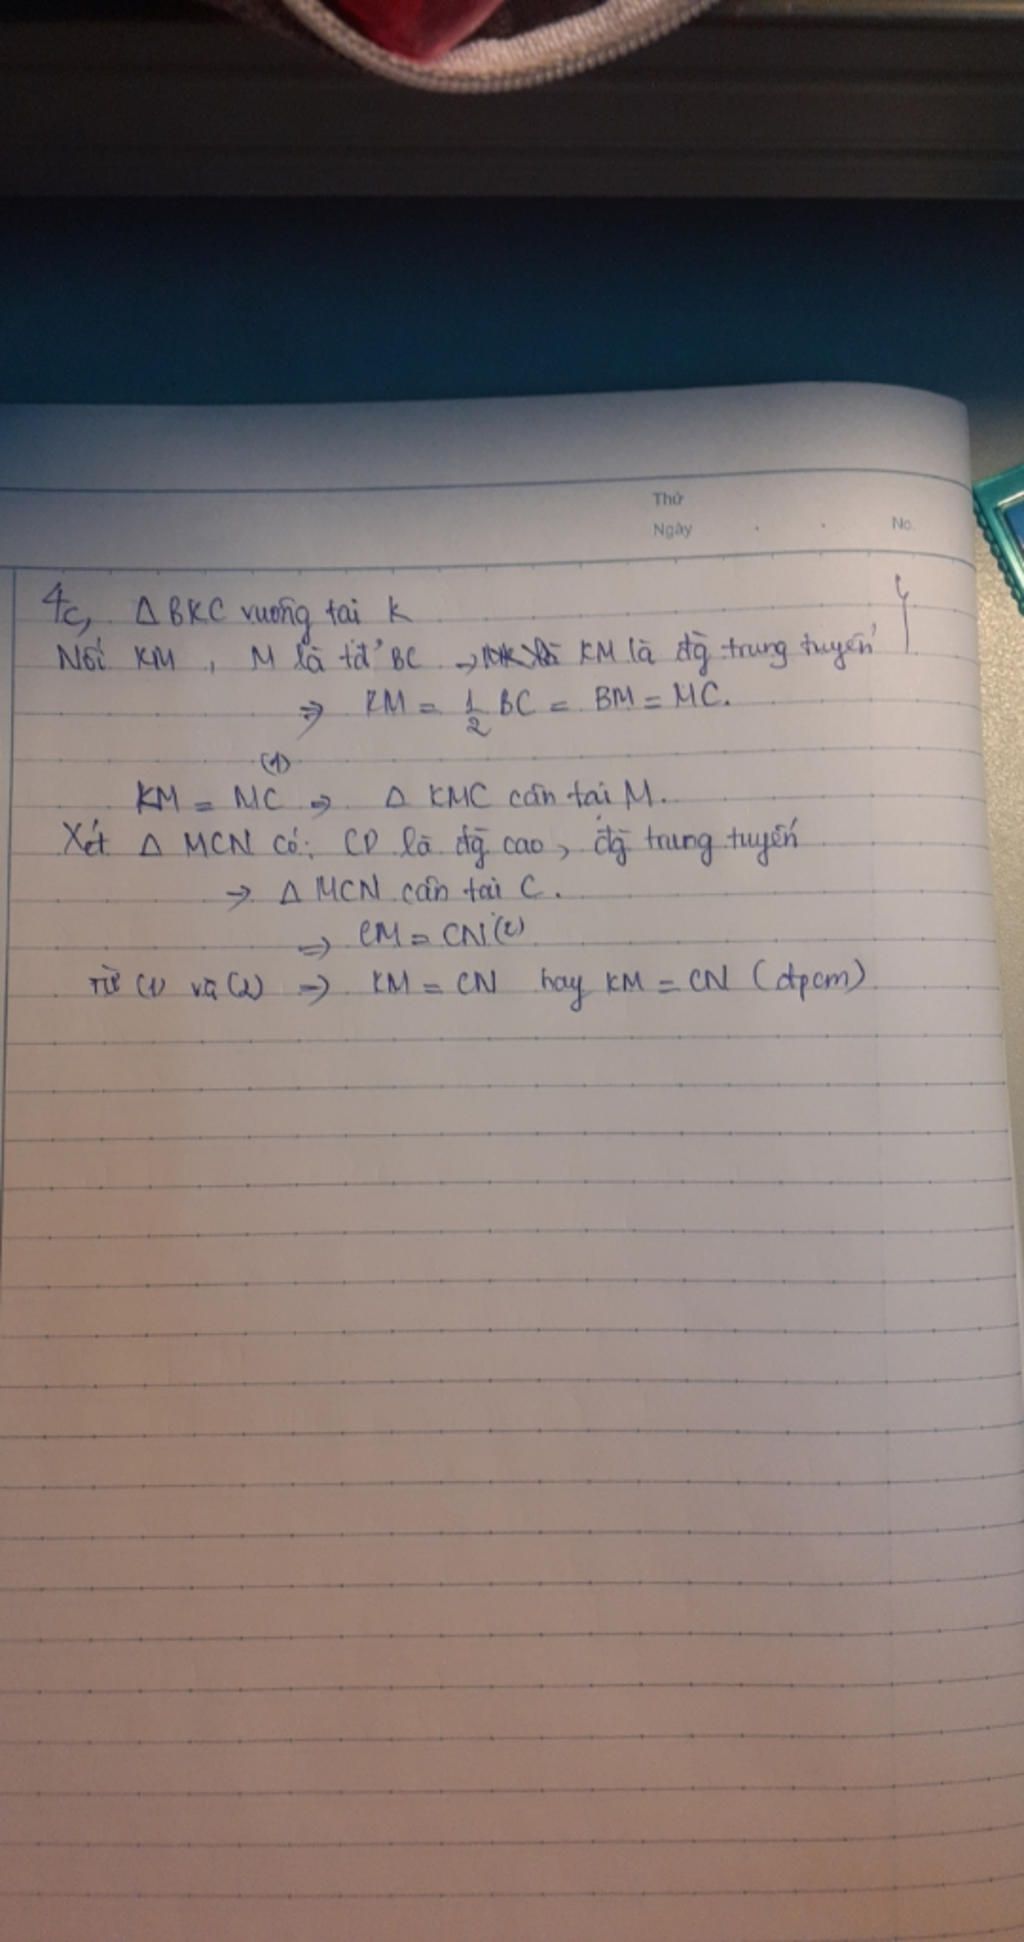 Thứ
Ngày . . No.
4c, Δ BKC vuông tại K
Nối KM, M là tđ' BC → KM là đg̃ trung tuyến
⇒ KM = 1/2 BC = BM = MC.
(1)
KM = MC ⇒ Δ KMC cân tại M.
Xét Δ MCN có: CD là đg̃ cao, đg̃ trung tuyến
⇒ Δ MCN cân tại C.
⇒ CM = CN (2)
Từ (1) và (2) ⇒ KM = CN hay KM = CN (đpcm)